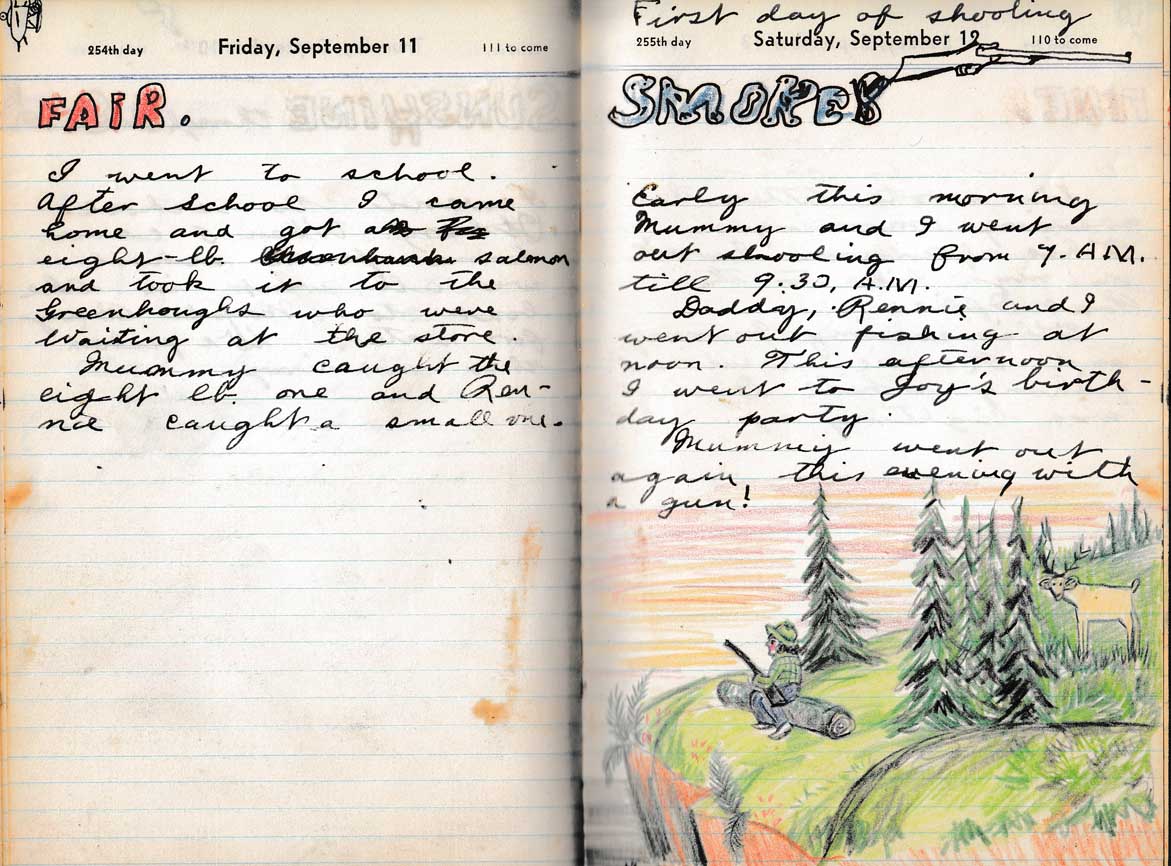 254th day Friday, September 11 111 to come
FAIR.
I went to school.
After school I came
home and got an
eight-lb. salmon
and took it to the
Greenhoughs who were
waiting at the store.
Mummy caught the
eight lb. one and Ren-
nie caught a small one.
First day of shooting
255th day Saturday, September 12 110 to come
SMOKEY
Early this morning
Mummy and I went
out shooling from 7. A.M.
till 9.30, A.M.
Daddy, Rennie and I
went out fishing at
noon. This afternoon
I went to Joy's birth-
day party.
Mummy went out
again this evening with
a gun!